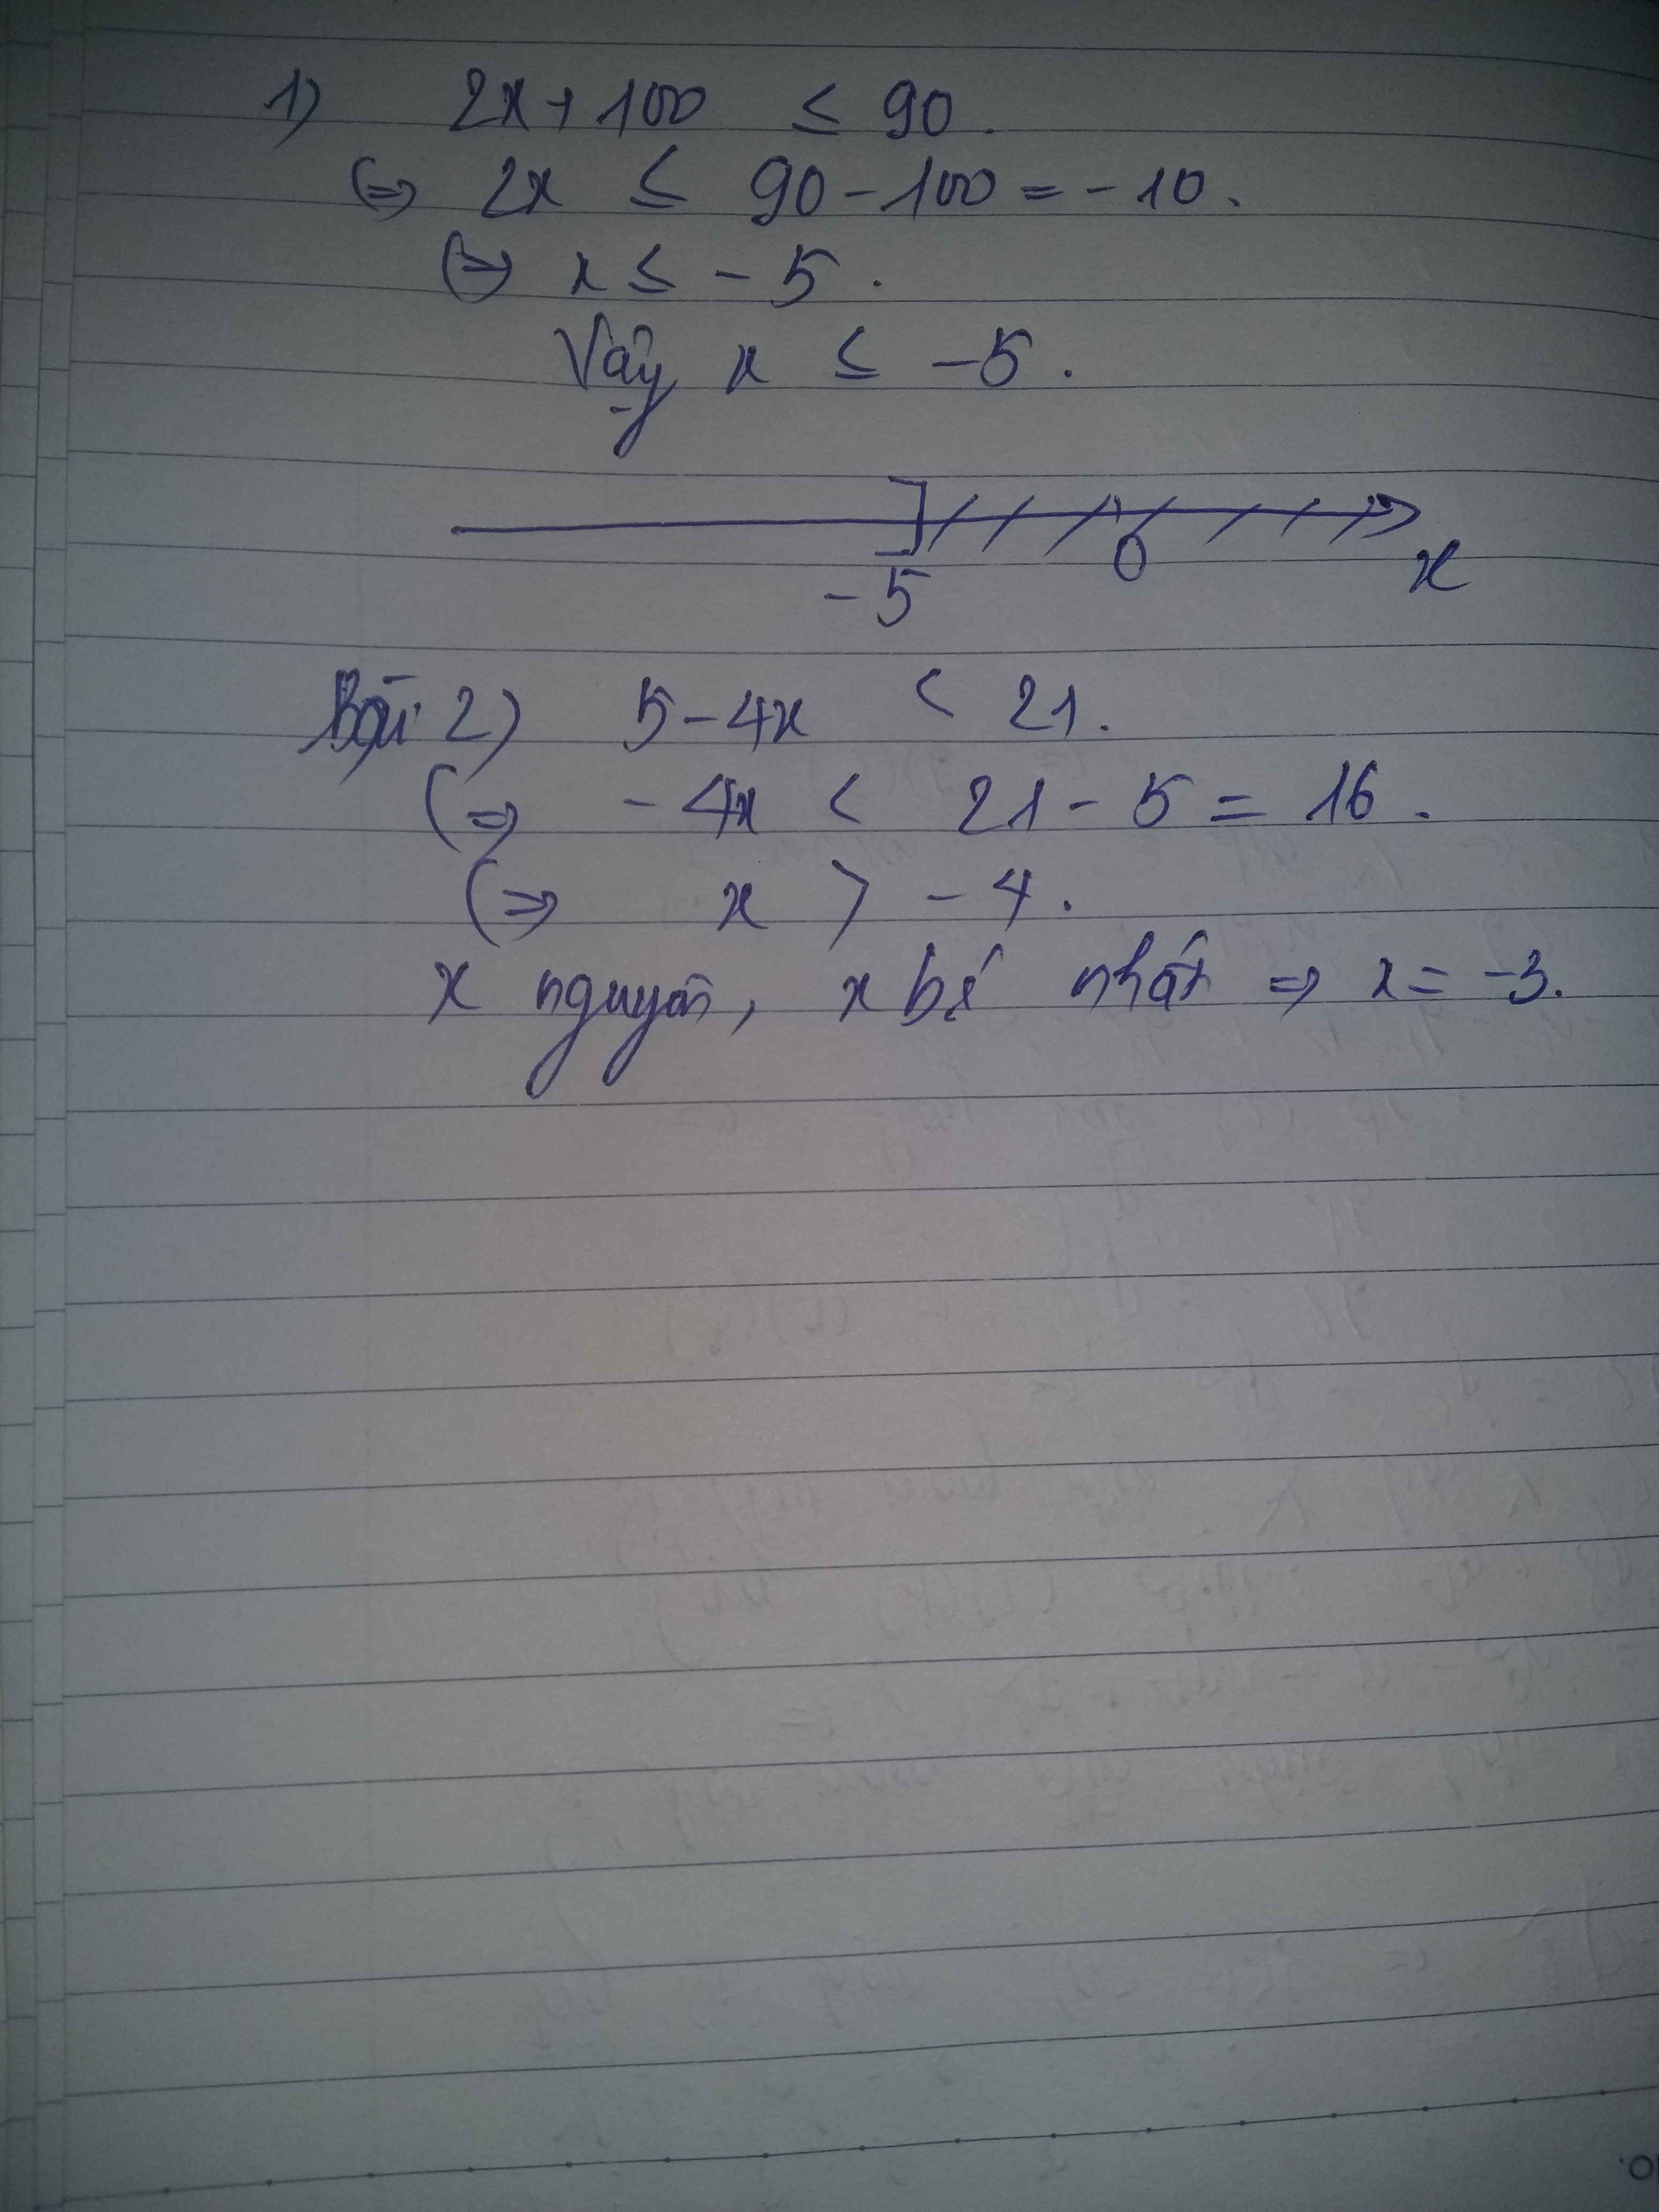 1) 2x + 100 ≤ 90.
(=> 2x ≤ 90 - 100 = -10.
(=> x ≤ -5.
Vậy x ≤ -5.
-5 0 x
Bài 2) 5 - 4x < 21.
(=> -4x < 21 - 5 = 16.
(=> x > -4.
x nguyên, x bé nhất => x = -3.